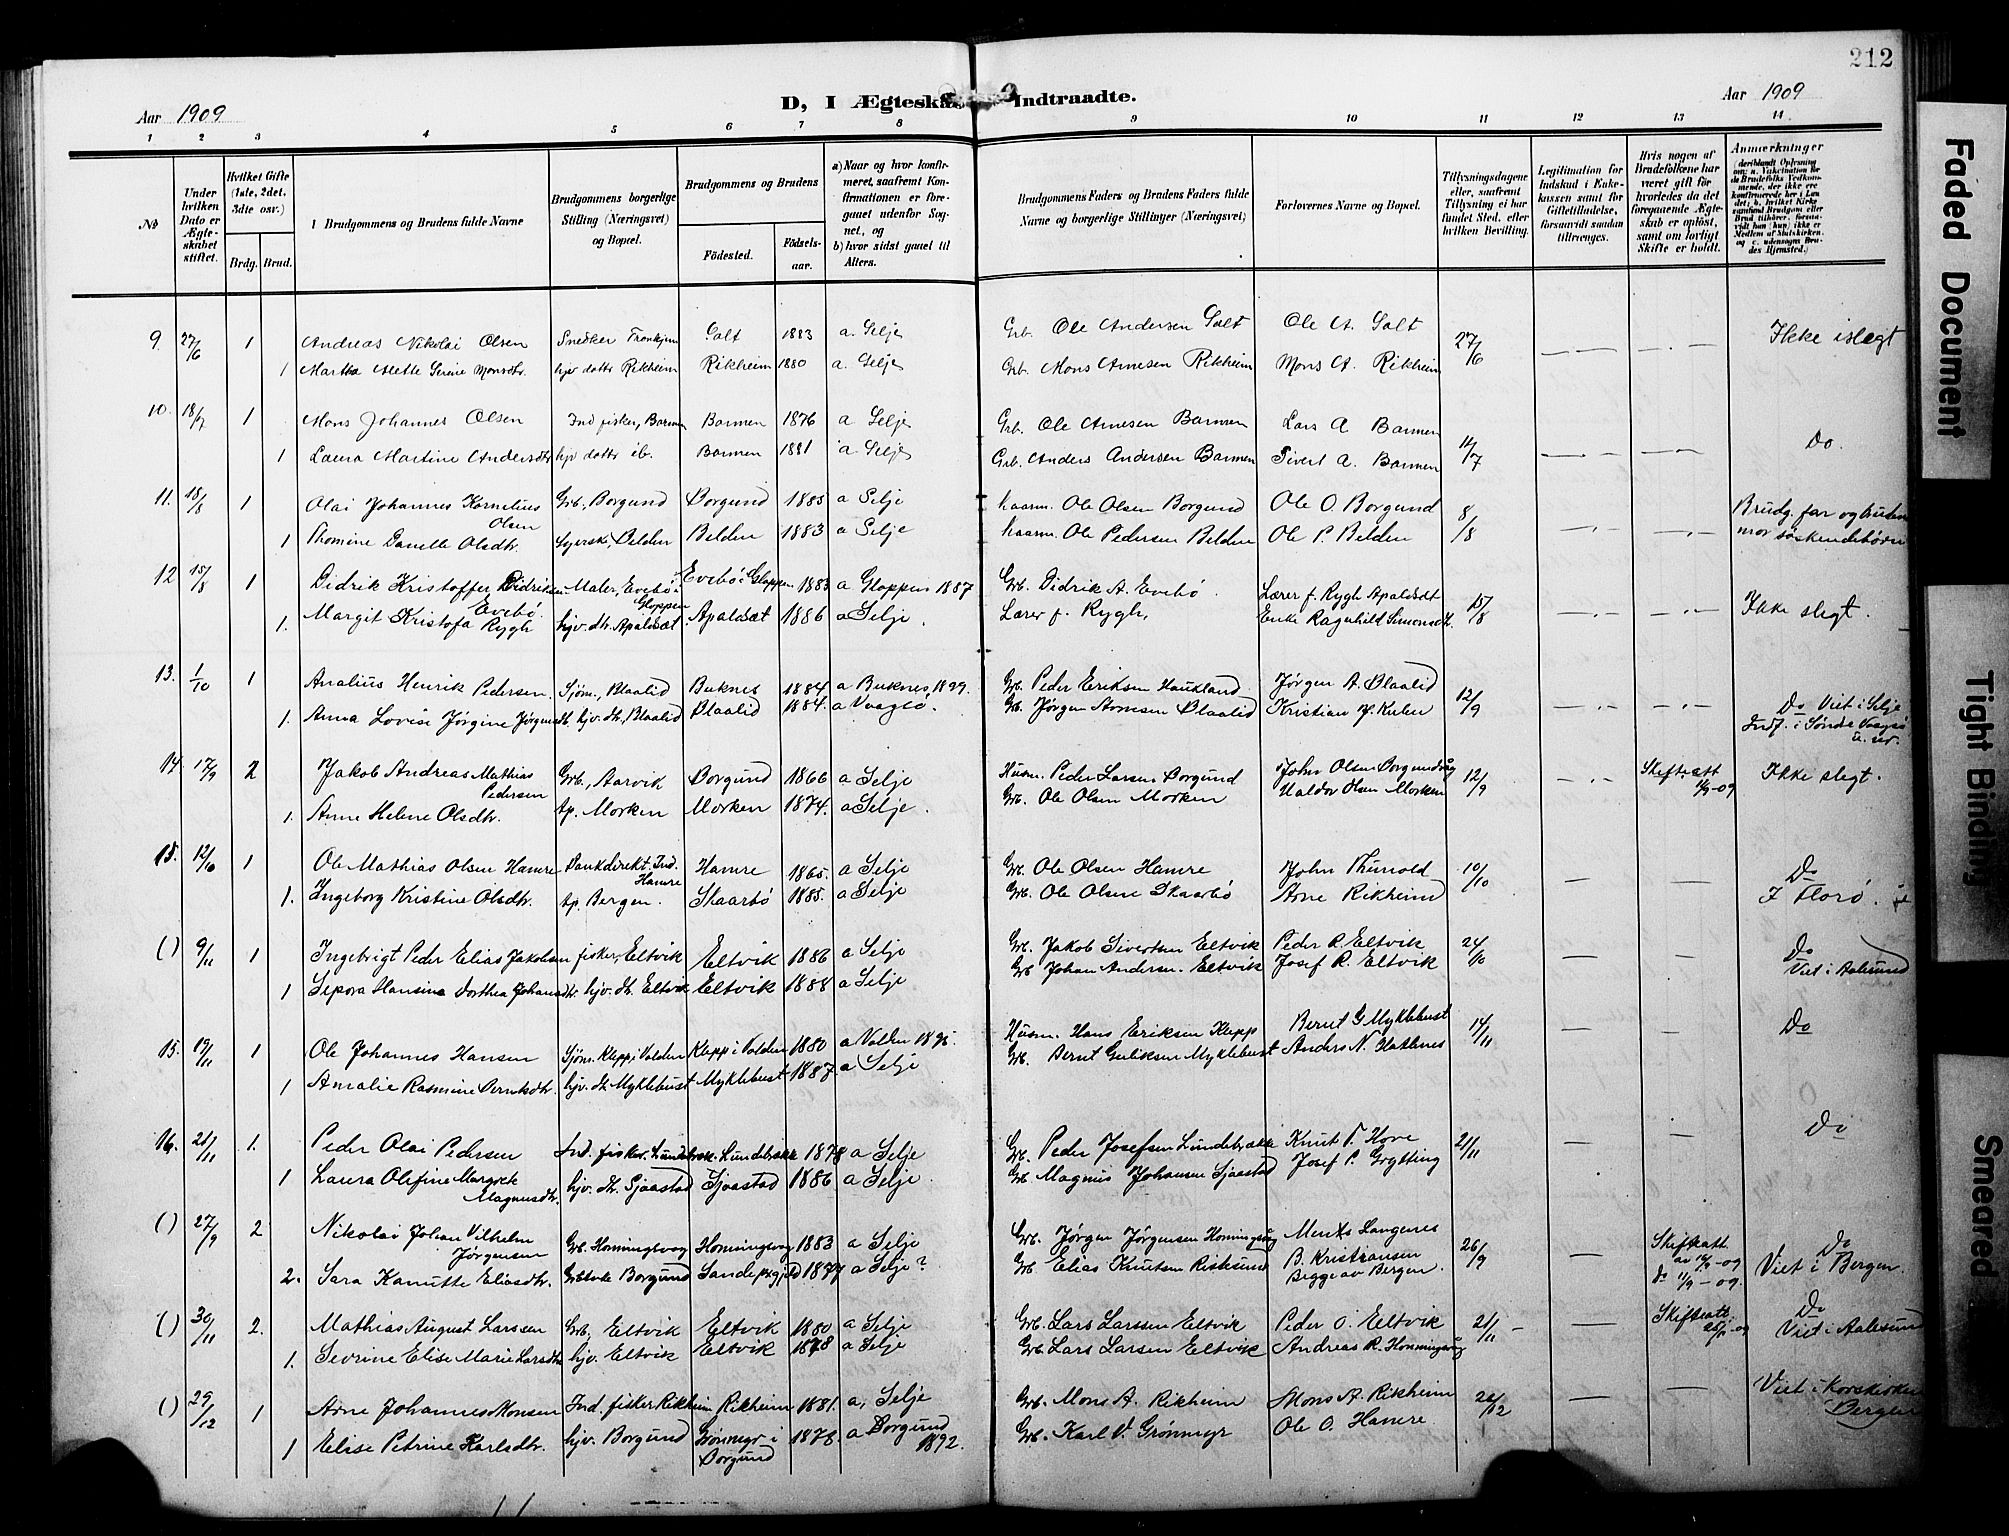 212
Aar 1909
D, I Ægteska Indtraadte.
Aar 1909
1 2 3 4 5 6 7 8 9 10 11 12 13 14
No
Under hvilken Dato er Ægteskabet stiftet.
Hvilket Gifte (1ste, 2det, 3dte osv.)
Brdg. Brud.
Brudgommens og Brudens fulde Navne
Brudgommens borgerlige Stilling (Næringsvei) og Bopæl.
Brudgommens og Brudens
Födested. Födselsaar.
a) Naar og hvor konfirmeret, saafremt Konfirmationen er foregaaet udenfor Sognet, og
b) hvor sidst gaaet til Alters.
Brudgommens Faders og Brudens Faders fulde Navne og borgerlige Stillinger (Næringsvei)
Forlovernes Navne og Bopæl.
Tillysningsdagene eller, saafremt Tillysning ei har fundet Sted, efter hvilken Bevilling.
Legitimation for Indskud i Enkekassen samt for Giftetilladelse, forsaavidt saadan tiltrænges.
Hvis nogen af Brudefolkene har været gift för, hvorledes da det foregaaende Ægteskab er oplöst, samt om lovligt Skifte er holdt.
Anmærkninger
9. 27/6 1 Andreas Nikolai Olsen Snedker Trondhjem Salt 1883 a. Selje Grb. Ole Andersen Salt Ole A. Salt 27/6 Ikke i slegt
1 Martha Mette Serine Monsdtr. hjv datter Rikheim Rikheim 1880 a. Selje Grb. Mons Arnesen Rikheim Mons A. Rikheim
10. 18/7 1 Mons Johannes Olsen Ind fisker, Barmen Barmen 1876 a Selje Grb. Ole Arnesen Barmen Lars A Barmen 11/7 Do.
1 Laura Martine Andersdtr hjv datter ib. Barmen 1881 a Selje Grb. Anders Andersen Barmen Sivert A. Barmen
11. 15/8 1 Olai Johannes Kornelius Olsen Grb. Borgund Borgund 1885 a Selje kaarm. Ole Olsen Borgund Ole O. Borgund 8/8 Brudg. far og brudens
1 Thomine Danelle Olsdtr. Syersk, Belden Belden 1883 a Selje kaarm. Ole Pedersen Belden Ole P. Belden mor søskendebørn
12 15/8 1 Didrik Kristoffer Didriksen Evebø Maler, Evebø i Gloppen Evebø i Gloppen 1883 a Gloppen 1887 Grb. Didrik A. Evebø Lærer J. Rygh Apaldsæt 15/8 Ikke slegt.
1. Margit Kristofa Rygh hjv. dtr. Apaldsæt Apaldsæt 1886 a Selje. Lærer J. Rygh, Enke Ragnhild Simonsdt.
13. 1/10 1 Analius Henrik Pedersen. Sjøm., Blaalid Buknes 1884 a Buknes, 1899. Grb. Peder Eriksen Haukland Jørgen A. Blaalid 12/9 Do Viet i Selje
1. Anna Lovise Jørgine Jørgensdtr. hjv. dtr. Blaalid Blaalid 1884. a Vaagsø. Grb. Jørgen Arnesen Blaalid Kristian M. Kulen Indf. i Søndre Vaagsø u. nr.
14 17/9 2 Jakob Andreas Mathias Pedersen Grb. Aarvik Borgund 1866 a Selje Husm. Peder Larsen Borgund John Olsen Borgundvåg 12/9 Skifteatt Ikke slegt.
1. Anne Helene Olsdtr. Ap. Morken Morken 1874. a Selje. Grb. Ole Olsen Morken Haldor Olsen Morken
15. 12/10 1 Ole Mathias Olsen Hamre Bankdirekt. Ind. Hamre Hamre 1865. a Selje Grb. Ole Olsen Hamre John Thunold 10/10 Do
1. Ingeborg Kristine Olsdtr. Ap. Bergen. Skaarbø 1885. a Selje Grb. Ole Olsen Skaarbø Arne Rikheim I Florø.
() 9/11 1 Ingebrigt Peder Elias Jakobsen fisker, Eltvik Eltvik 1886 a Selje Grb. Jakob Sivertsen Eltvik Peder R. Eltvik 24/10 Do
1 Sipora Hansine Dorthea Johansdtr. hjv. dtr. Eltvik Eltvik 1888 a Selje Grb Johan Andersen. Eltvik Josef R. Eltvik Viet i Aalesund
15. 19/11 1 Ole Johannes Hansen Sjøm. Klepp i Volden Klepp i Volden 1880 a Volden 1895. Husm. Hans Eriksen Klepp Bernt G Myklebust 14/11 Do
1 Amalie Rasmine Berntsdtr. hjv. dtr. Myklebust Myklebust 1887. a Selje Grb. Bernt Guliksen Myklebust Anders N. Hatlenes
16. 21/11 1. Peder Olai Pedersen Ind. fisker. Lundebrek. Lundebrekk 1878 a Selje Grb. Peder Josefsen Lundebrekke Knut P. Hove 21/11 Do
1 Laura Olefine Margrete Magnusdtr. hjv. dtr. Sjaastad Sjaastad 1886 a Selje. Grb. Magnus Johansen Sjaastad Josef P. Grytting
() 27/9 2 Nikolai Johan Vilhelm Jørgensen Grb. Honningsvag Honningsvag 1883 a Selje Grb. Jørgen Jørgensen Honningsvåg Ments Langenes 26/9 Skifteatt. av 14/9-09 Do
2. Sara Kanutte Eliasdtr. Grbenke Borgund Sande prgjld 1877 a Selje? Grb Elias Knutsen Risksund B. Kristiansen Begge av Bergen. Do 11/9-09. Viet i Bergen.
() 30/11 2. Mathias August Larssen Grb. Eltvik Eltvik 1880 a Selje Grb. Lars Larssen Eltvik Peder O. Eltvik 21/11 Skifteatt. Do
1. Sevrine Elise Marie Larsdtr. hjv. Eltvik Eltvik 1878 a Selje Grb. Lars Larsen Eltvik Andreas R. Honningsvåg Viet i Aalesund
() 29/12 1 Arne Johannes Monsen Ind. fisker Rikheim Rikheim 1881. a. Selje Grb. Mons A. Rikheim Mons A. Rikheim 26/12 Viet i Korskirken
1 Elise Petrine Karlsdtr. hjv. Borgund Grønmyr i Borgund 1878 a Borgund 1892. Grb. Karl V. Grønmyr Ole O. Hamre Bergen
Faded Document
Tight Binding
Smeared